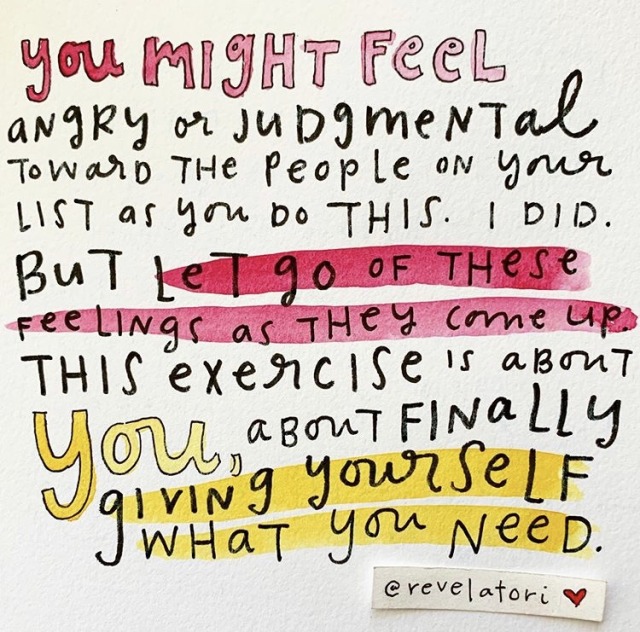 you MIGHT Feel
ANgRy or JuDgmeNTal
TowarD THe PeopLe oN your
LIST as you Do THIS. I DID.
BuT LeT go oF THese
FeeLINgs as THey come up.
THIS exercise is aBouT
you, aBouT FINaLLy
gIVINg yourSeLF
WHaT you NeeD.
@revelatori